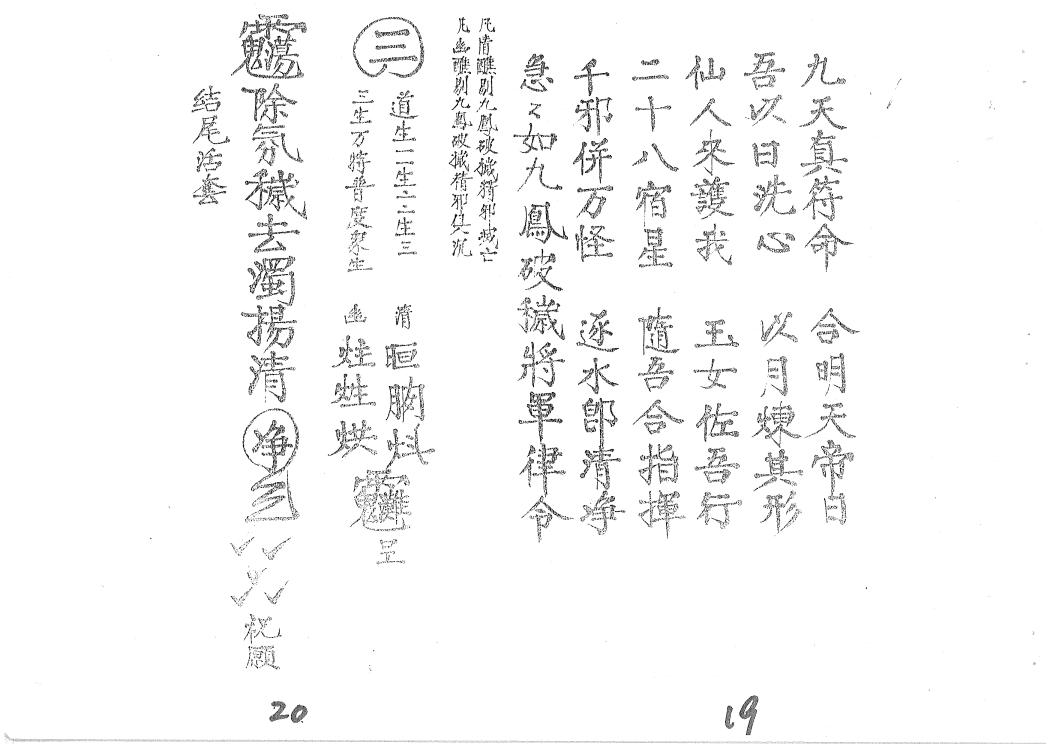 九天真符命 合明天帝日
吾以日洗心 以月煉其形
仙人來護我 玉女佐吾行
二十八宿星 隨吾合指揮
千邪併万怪 逐水即清净
急々如九鳳破穢將軍律令
凡清醮則九鳳破穢精邪滅亡
凡幽醮則九鳳破穢精邪俱沉
三
道生一一生二二生三
三生万特普度眾生
清
幽
除氛穢去濁揚清 净
祝願
结尾活套
19
20